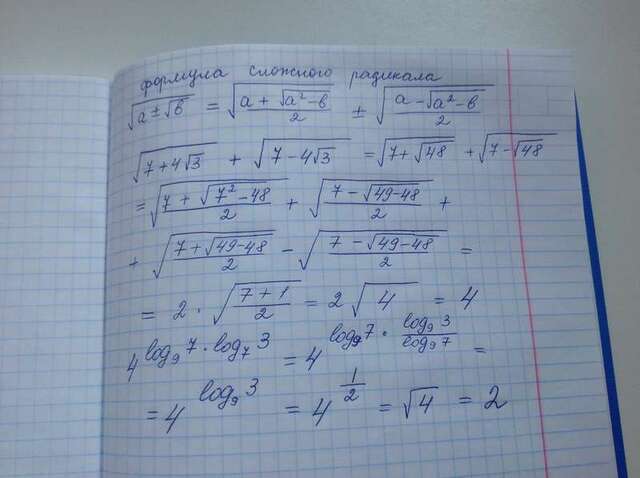 формула сложного радикала
√(a ± √b) = √((a + √(a² - b))/2) ± √((a - √(a² - b))/2)
√(7 + 4√3) + √(7 - 4√3) = √(7 + √48) + √(7 - √48)
= √((7 + √(7² - 48))/2) + √((7 - √(49 - 48))/2) +
+ √((7 + √(49 - 48))/2) - √((7 - √(49 - 48))/2) =
= 2 · √((7 + 1)/2) = 2√4 = 4
4^(log₉7 · log₇3) = 4^(log₉7 · log₉3/log₉7) =
= 4^(log₉3) = 4^(1/2) = √4 = 2